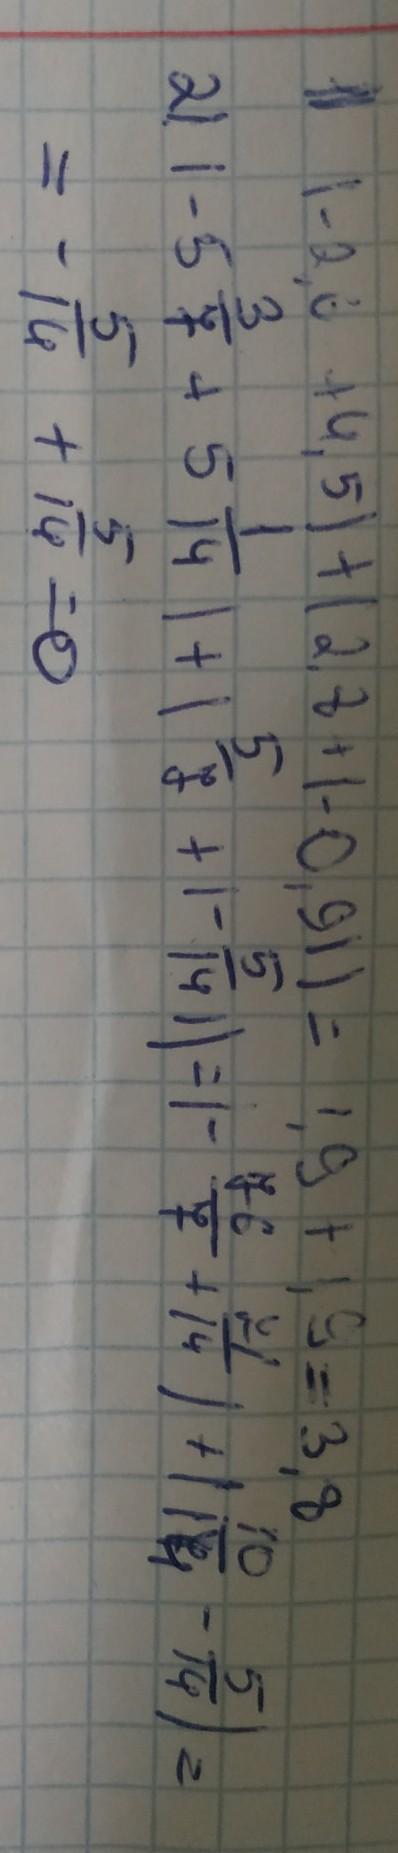 1) (-2,6 +4,5)+(2,8+(-0,9))= 1,9+1,9=3,8
2) (-5 3/7 + 5 1/14)+(5/7 +(-5/14))=(- 76/7 + 71/14)+(10/14 - 5/14)=
= - 5/14 + 5/14 =0